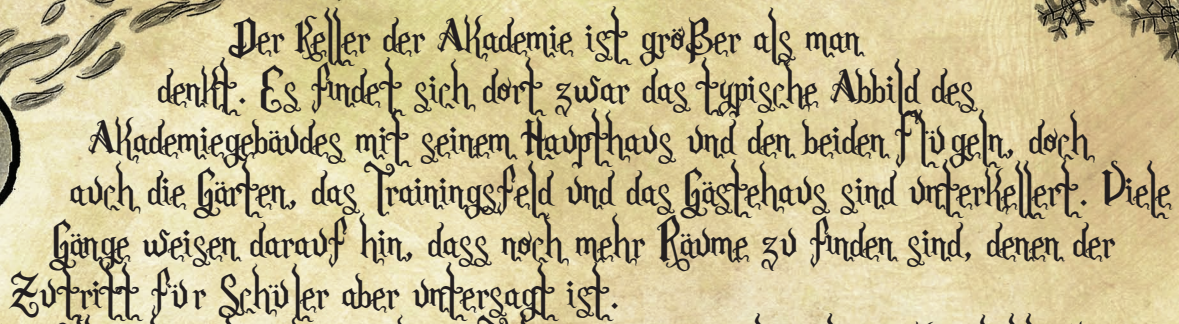 Der Keller der Akademie ist größer als man
denkt. Es findet sich dort zwar das typische Abbild des
Akademiegebäudes mit seinem Haupthaus und den beiden Flügeln, doch
auch die Gärten, das Trainingsfeld und das Gästehaus sind unterkellert. Viele
Gänge weisen darauf hin, dass noch mehr Räume zu finden sind, denen der
Zutritt für Schüler aber untersagt ist.